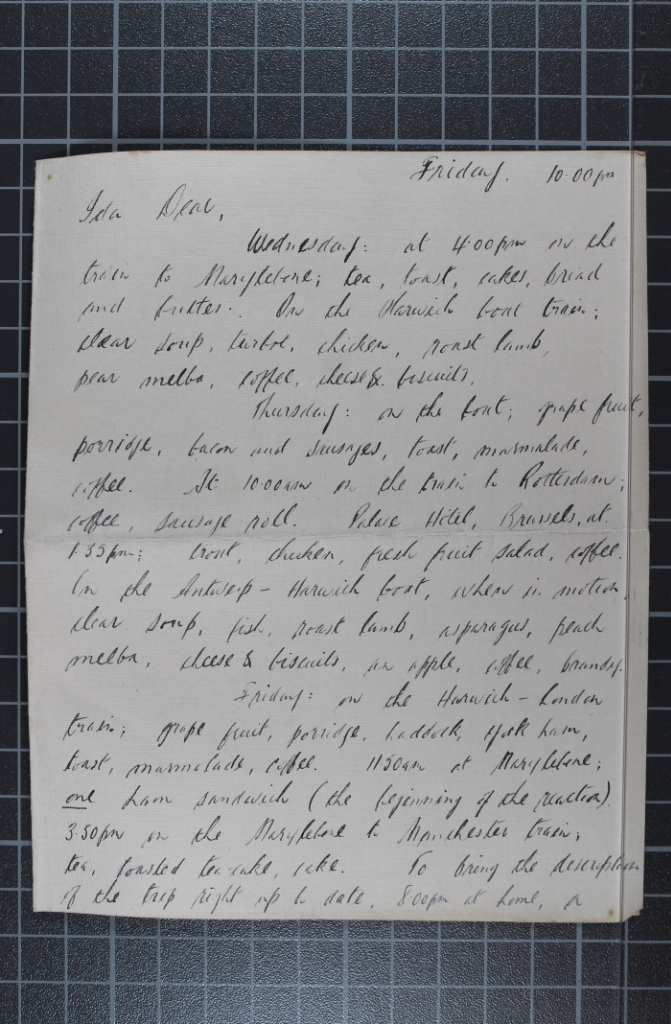 Friday. 10.00pm
Ida Dear,
Wednesday: at 4.00pm on the
train to Marylebone; tea, toast, cakes, bread
and butter. On the Harwich boat train;
clear soup, turbot, chicken, roast lamb,
pear melba, coffee, cheese & biscuits.
Thursday: on the boat; grape fruit,
porridge, bacon and sausages, toast, marmalade,
coffee. At 10.00am on the train to Rotterdam;
coffee, sausage roll. Palace Hotel, Brussels, at
1.35pm; trout, chicken, fresh fruit salad, coffee.
On the Antwerp - Harwich boat, when in motion,
clear soup, fish, roast lamb, asparagus, peach
melba, cheese & biscuits, an apple, coffee, brandy.
Friday: on the Harwich - London
train; grape fruit, porridge, haddock, york ham,
toast, marmalade, coffee. 11.50am at Marylebone;
one ham sandwich (the beginning of the reaction).
3.50pm on the Marylebone to Manchester train;
tea, toasted tea-cake, cake. To bring the description
of the trip right up to date, 8.00pm at home, a